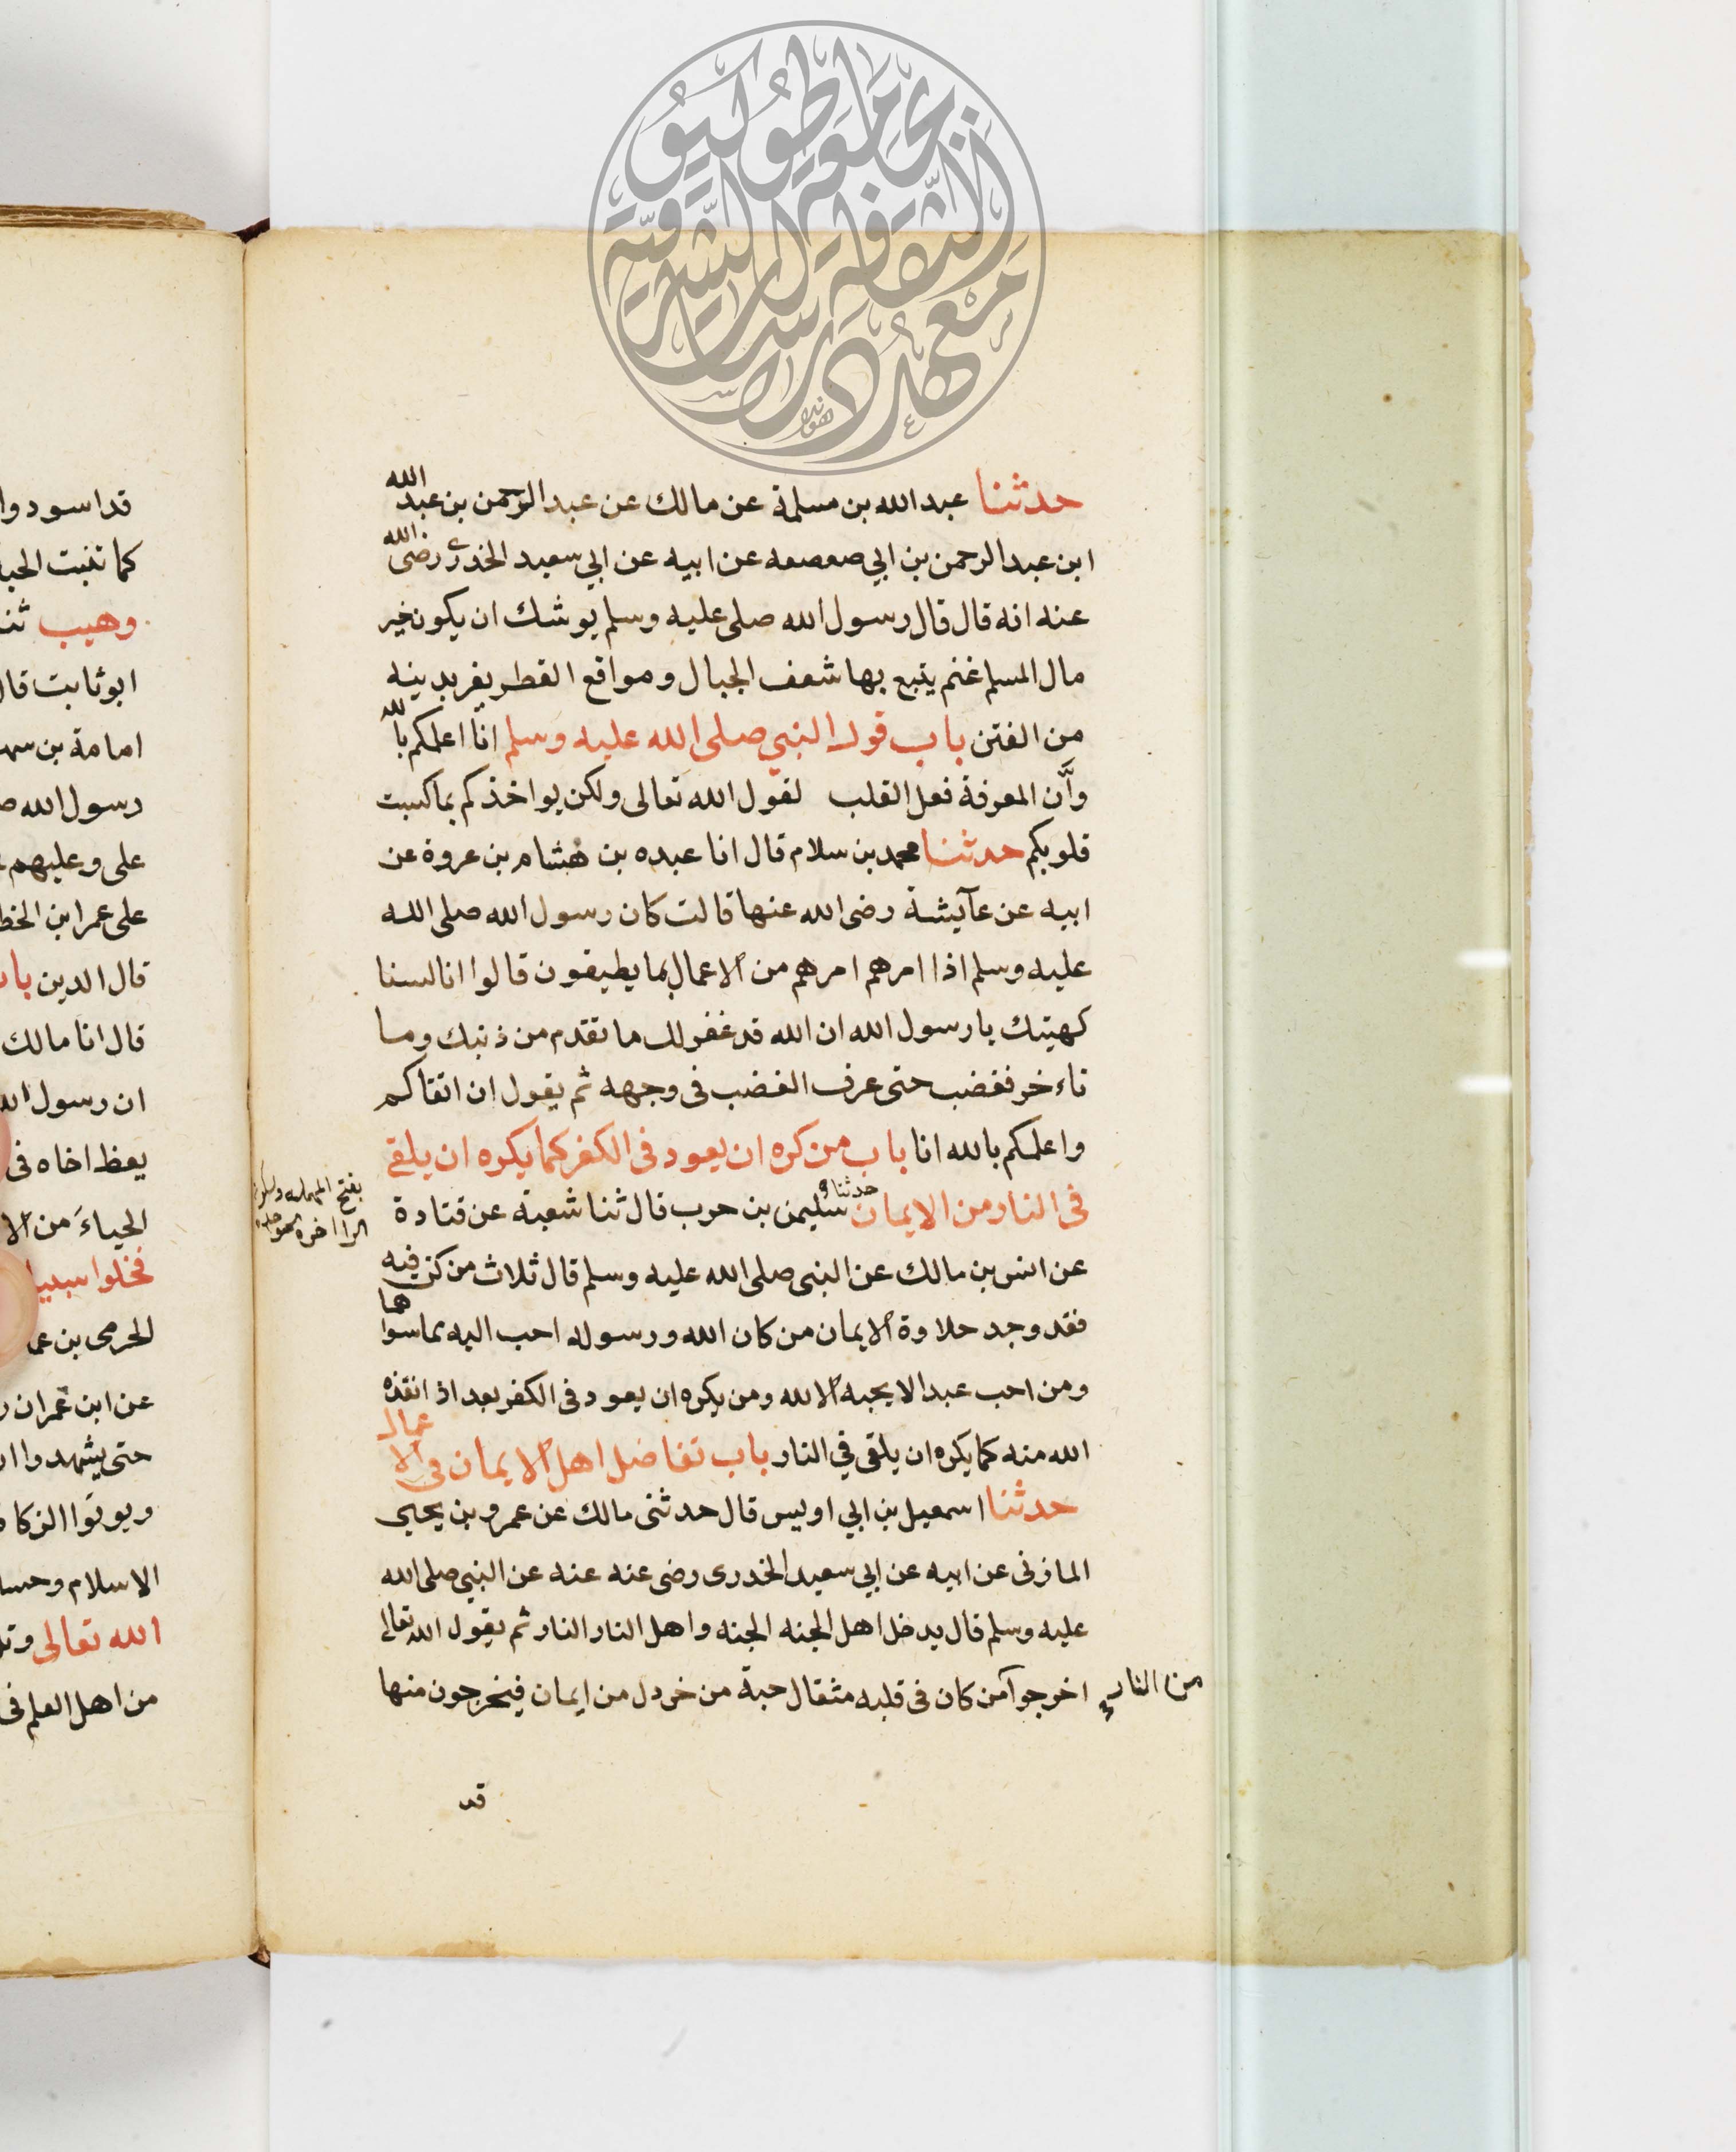 حدثنا عبد الله بن مسلمة عن مالك عن عبد الرحمن بن عبد الله
ابن عبد الرحمن بن ابي صعصعه عن ابيه عن ابي سعيد الخدري رضى الله
عنه انه قال قال رسول الله صلى عليه وسلم يوشك ان يكون خير
مال المسلم غنم يتبع بها شعف الجبال ومواقع القطر يفر بدينه
من الفتن باب قول النبي صلى الله عليه وسلم انا اعلمكم بالله
وأن المعرفة فعل القلب لقول الله تعالى ولكن يواخذكم بما كسبت
قلوبكم حدثنا محمد بن سلام قال انا عبده بن هشام بن عروة عن
ابيه عن عآيشة رضى الله عنها قالت كان رسول الله صلى الله
عليه وسلم اذا امرهم امرهم من الاعمال بما يطيقون قالوا انا لسنا
كهيتك يا رسول الله ان الله قد غفر لك ما تقدم من ذنبك وما
تاءخر فغضب حتى عرف الغضب فى وجهه ثم يقول ان اتقاكم
واعلمكم بالله انا باب من كره ان يعود فى الكفر كما يكره ان يلقى
فى النار من الايمان حدثنا سليمن بن حرب قال ثنا شعبة عن قتادة
بفتح المهمله وسكون
الرا اخره موحده
عن انس بن مالك عن النبى صلى الله عليه وسلم قال ثلاث من كن فيه
فقد وجد حلاوة الايمان من كان الله ورسوله احب اليه مما سواهما
ومن احب عبدا لا يحبه الا لله ومن يكره ان يعود فى الكفر بعد اذ انقذه
الله منه كما يكره ان يلقى في النار باب تفاضل اهل الايمان فى الاعمال
حدثنا اسمعيل بن ابي اويس قال حدثنى مالك عن عمرو بن يحيى
المازنى عن ابيه عن ابي سعيد الخدرى رضى عنه عنه عن النبي صلى الله
عليه وسلم قال يدخل اهل الجنه الجنه واهل النار النار ثم يقول الله تعالى
من النار
اخرجوا من كان فى قلبه مثقال حبة من خردل من ايمان فيخرجون منها
قد
قد اسودوا
كما تنبت
وهيب
ابو ثابت قال
امامة بن
رسول الله
على وعليهم
على عمر ابن
قال الدين
قال انا مالك
ان رسول
يعظ اخاه فى
الحياء من
فخلوا
الحرمى بن
عن ابن عمر ان
حتى يشهدوا
ويوتوا الزكاة
الاسلام
الله تعالى
من اهل العلم فى